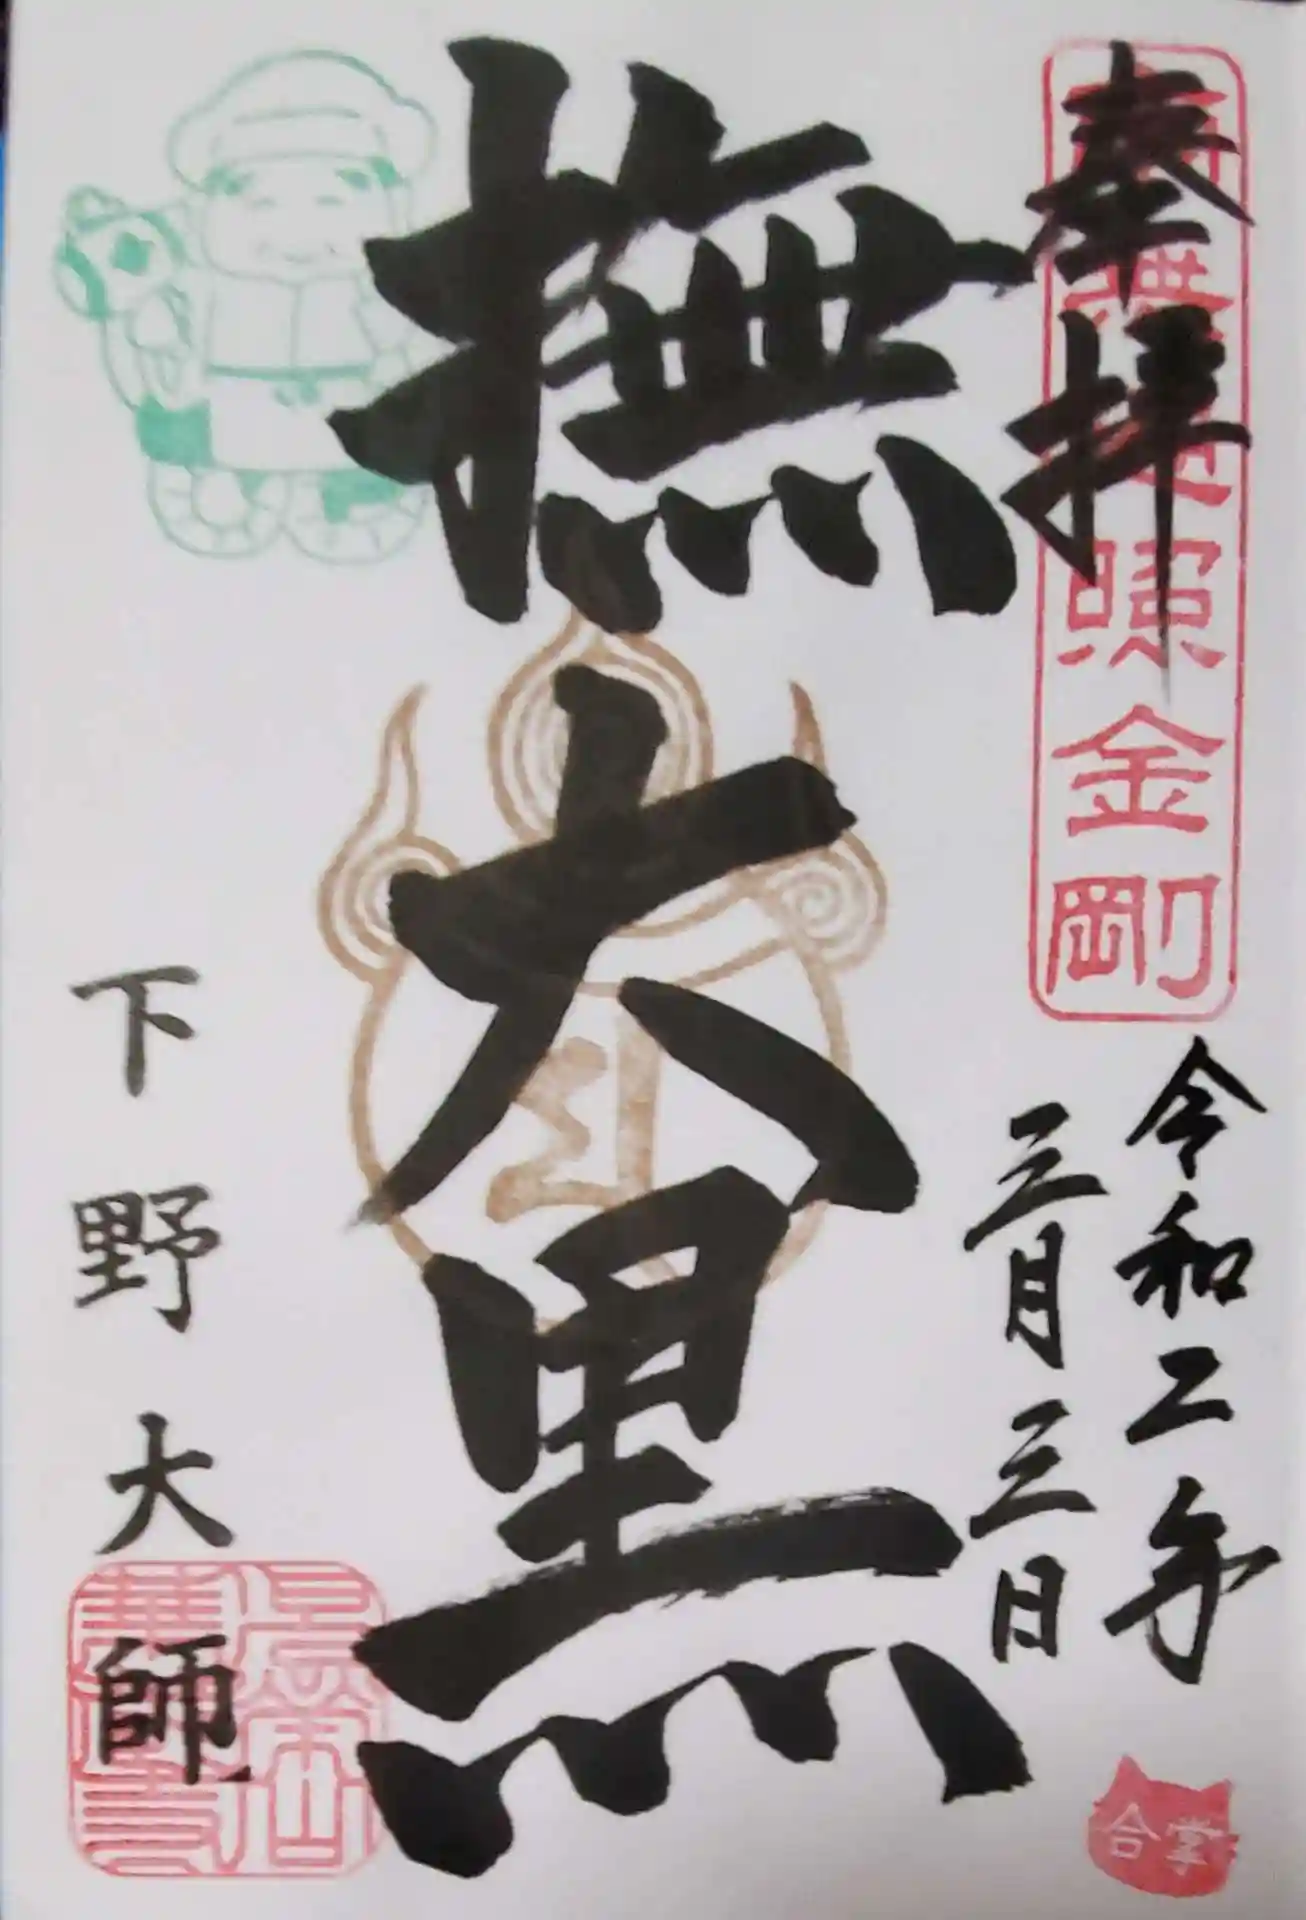 奉拝
南無遍照金剛
令和二年
三月三日
撫大黒
下野大師
合掌